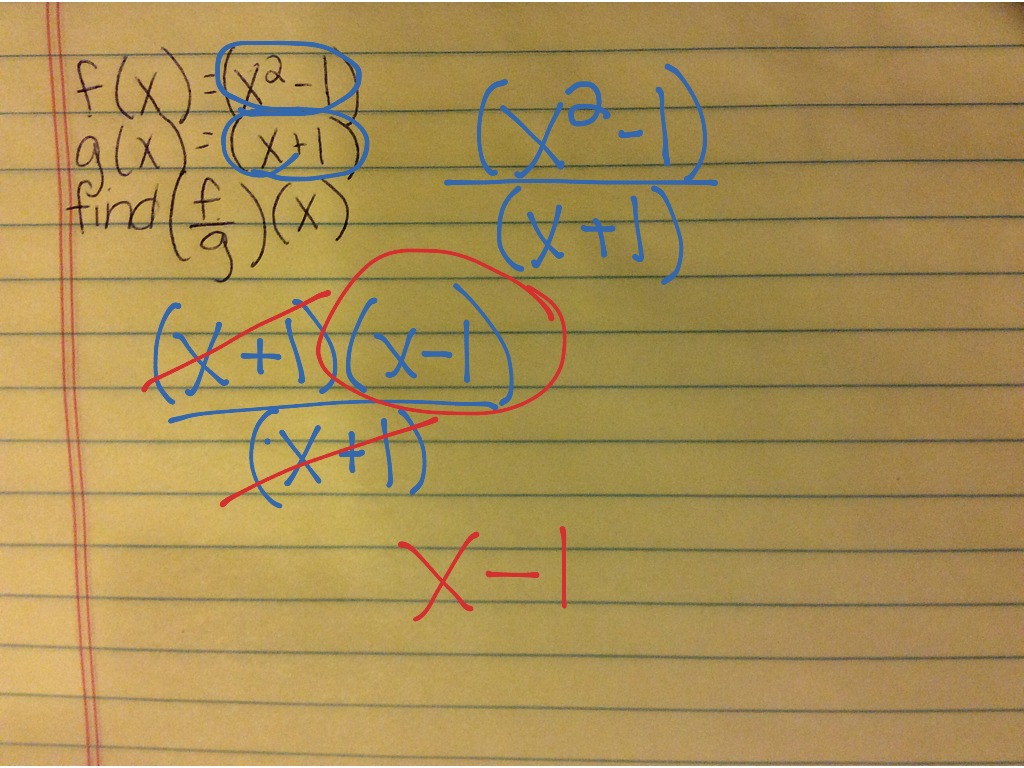 f(x) = (x² - 1)
g(x) = (x+1)
find (f/g)(x)
(x² - 1)
(x + 1)
(x + 1)(x - 1)
(x + 1)
x - 1